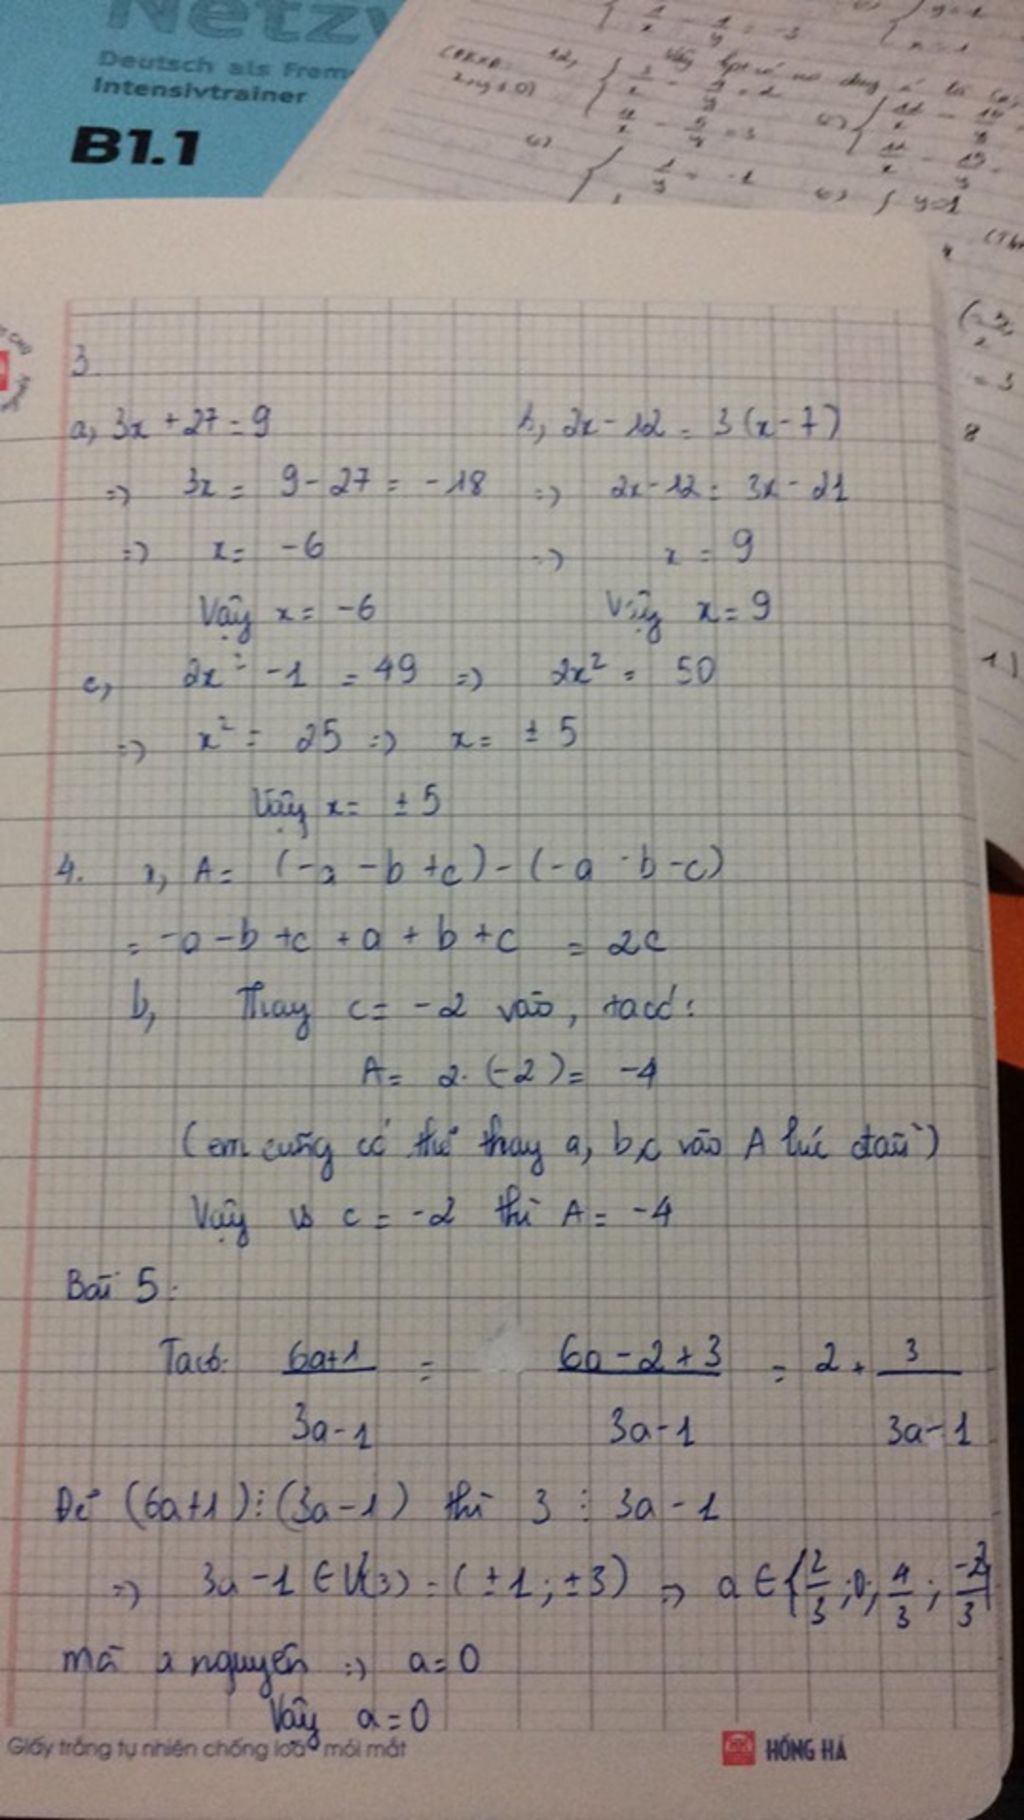 Netzw
Deutsch als Frem
Intensivtrainer
B1.1
3.
a, 3x + 27 = 9
=> 3x = 9 - 27 = -18
=> x = -6
Vậy x = -6
b, 2x - 12 = 3(x - 7)
=> 2x - 12 = 3x - 21
=> x = 9
Vậy x = 9
c, 2x² - 1 = 49 => 2x² = 50
=> x² = 25 => x = ± 5
Vậy x = ± 5
4. a, A = (-a - b + c) - (-a - b - c)
= -a - b + c + a + b + c = 2c
b, Thay c = -2 vào, ta có:
A = 2. (-2) = -4
(em cũng có thể thay a, b, c vào A lúc đầu)
Vậy vs c = -2 thì A = -4
Bài 5:
Ta có: (6a+1)/(3a-1) = (6a-2+3)/(3a-1) = 2 + 3/(3a-1)
Để (6a+1) ⋮ (3a-1) thì 3 ⋮ 3a - 1
=> 3a - 1 ∈ Ư(3) = (±1; ±3) => a ∈ {2/3; 0; 4/3; -2/3}
mà a nguyên => a = 0
Vậy a = 0
Giấy trắng tự nhiên chống loá mỏi mắt
HỒNG HÀ